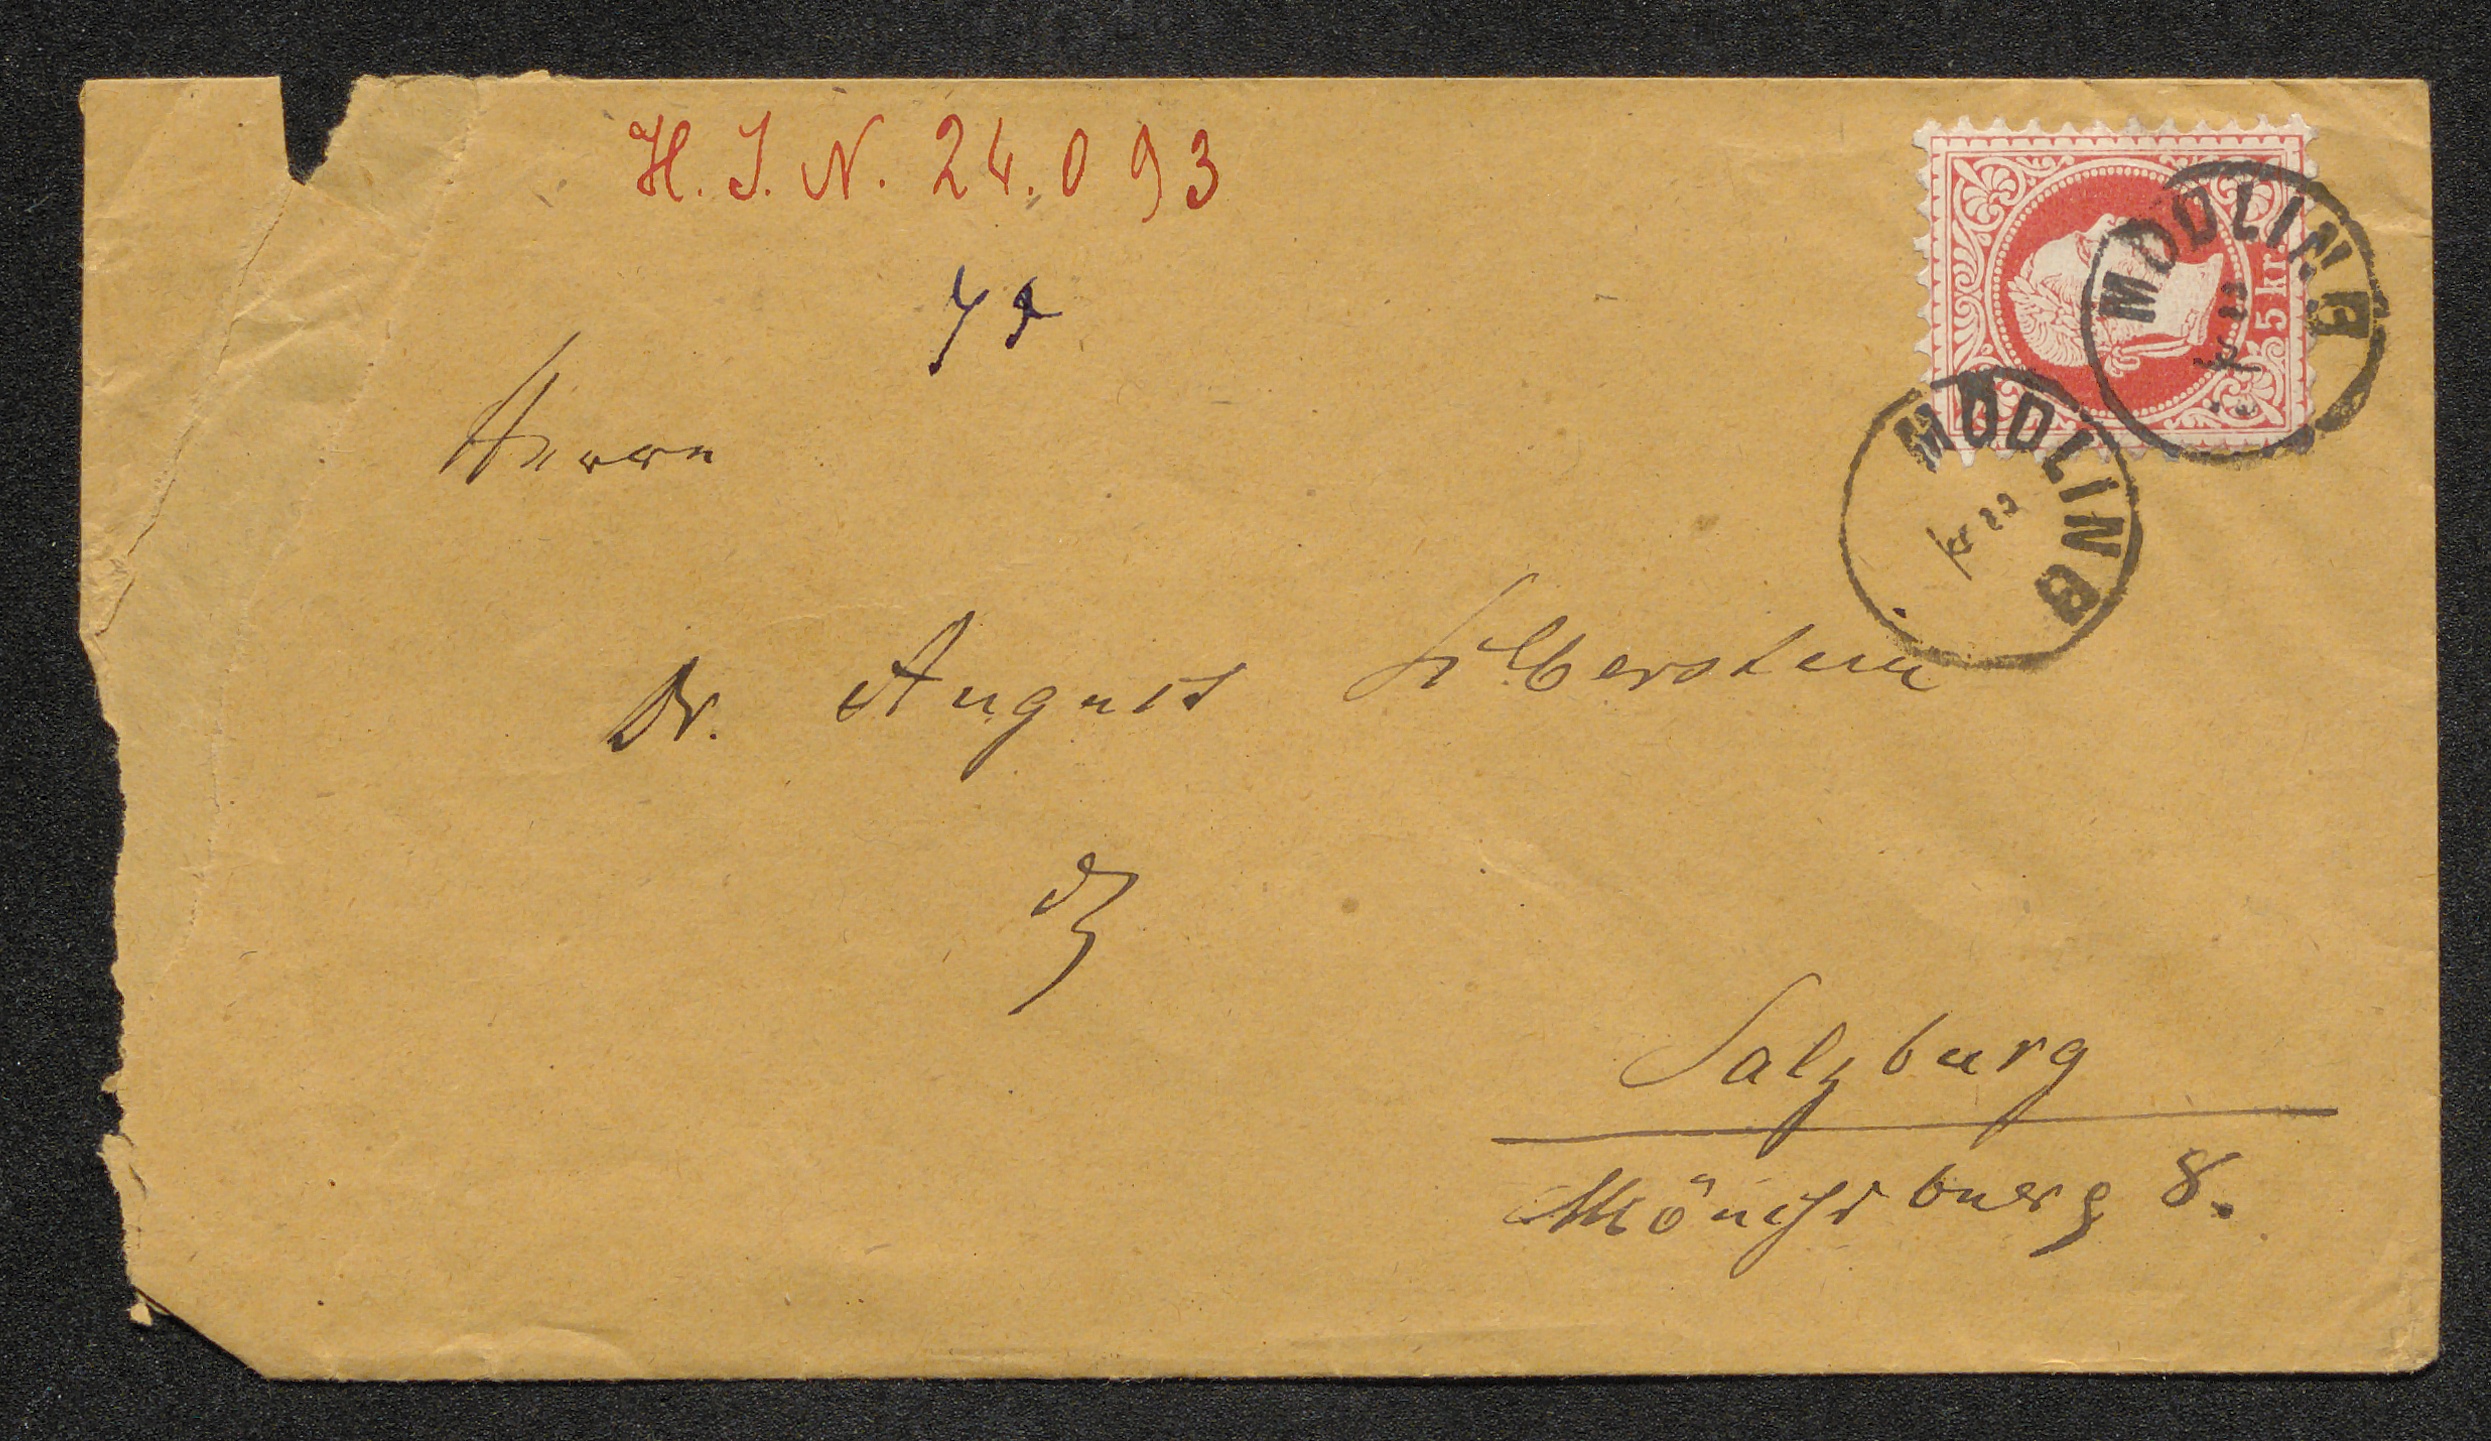 H. I. N. 24.093
5 kr
MÖDLING
MÖDLING
Herrn
Dr. August Silberstein
Salzburg
Mönchsberg 8.